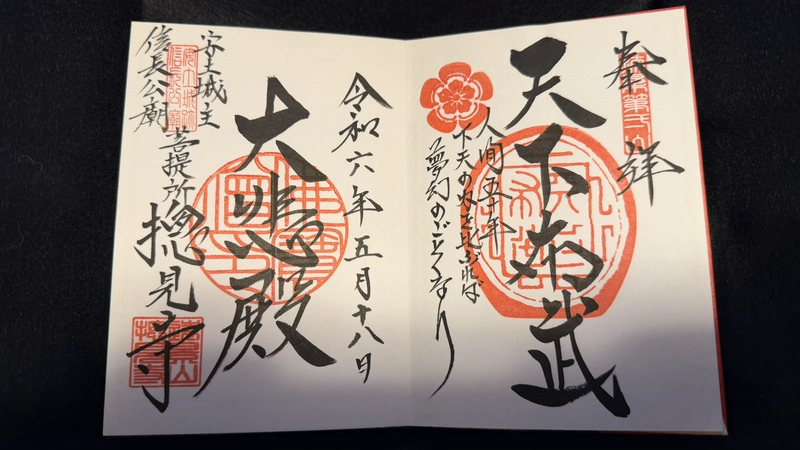 奉拝
天下布武
人間五十年
下天の内を比ぶれば
夢幻のごとくなり
令和六年五月十八日
大悲殿
安土城主
信長公廟
菩提所
摠見寺